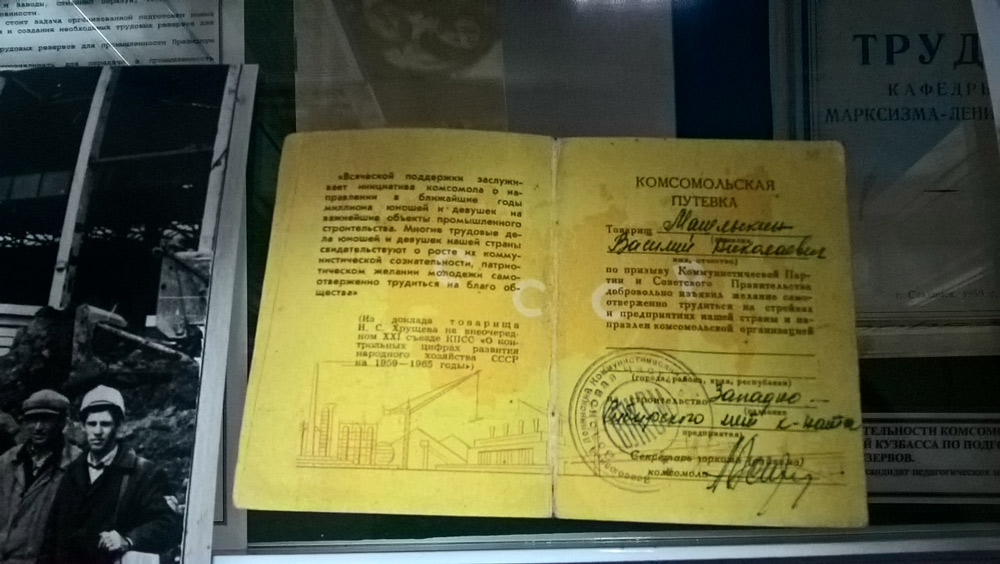 стоит задача организованной подготовки
и создания необходимых трудовых резервов для
трудовых резервов для промышленности
ТРУД
КАФЕДРЫ
МАРКСИЗМА-ЛЕНИ
«Всяческой поддержки заслужи-
вает инициатива комсомола о на-
правлении в ближайшие годы
миллиона юношей и девушек на
важнейшие объекты промышленного
строительства. Многие трудовые де-
ла юношей и девушек нашей страны
свидетельствуют о росте их комму-
нистической сознательности, патрио-
тическом желании молодежи само-
отверженно трудиться на благо об-
щества»
(Из доклада товарища
Н. С. Хрущева на внеочеред-
ном XXI съезде КПСС «О кон-
трольных цифрах развития
народного хозяйства СССР
на 1959—1965 годы»)
КОМСОМОЛЬСКАЯ
ПУТЕВКА
Товарищ
(фамилия)
Василий Николаевич
имя, отчество)
по призыву Коммунистической Пар-
тии и Советского Правительства
добровольно изъявил желание само-
отверженно трудиться на стройках
и предприятиях нашей страны и на-
правлен комсомольской организацией
(города, района, края, республики)
на строительство Западно-
Сибирского мет. к-ната
предприятия)
Секретарь горкома (райкома)
комсомола
ВЛКСМ
С С
ТЕЛЬНОСТИ КОМСОМО
Й КУЗБАССА ПО ПОДГ
ЗЕРВОВ.
кандидат педагогических